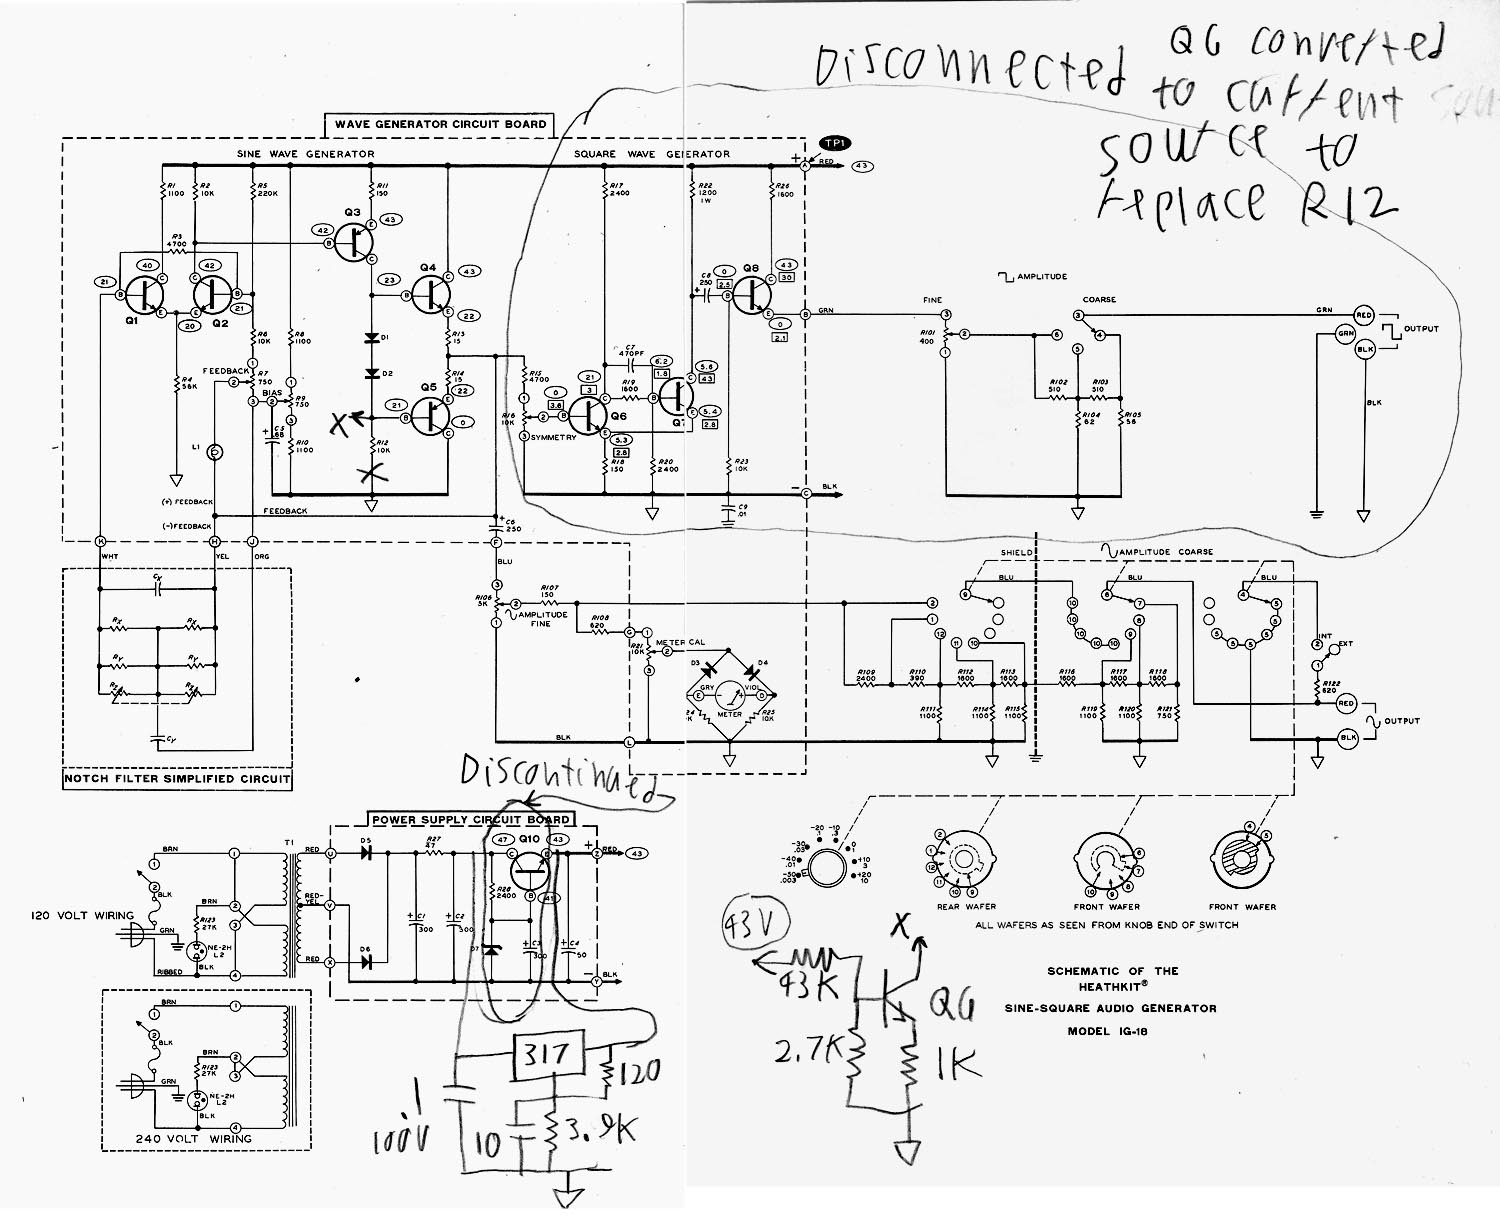 Disconnected
Q6 converted
to current
source to
replace R12
WAVE GENERATOR CIRCUIT BOARD
SINE WAVE GENERATOR
SQUARE WAVE GENERATOR
TP1
RED
43
R1
1100
R2
10K
R5
220K
R11
150
R17
2400
R22
1200
1W
R26
1600
R3
4700
Q3
42
43
Q1
21
40
20
Q2
42
21
Q4
23
43
22
R13
15
R14
15
Q5
21
22
0
D1
D2
R4
56K
R6
10K
R7
750
FEEDBACK
BIAS
R8
1100
R9
750
R10
1100
C5
68
R12
10K
X
X
L1
(+) FEEDBACK
(-) FEEDBACK
FEEDBACK
R15
4700
R16
10K
SYMMETRY
C7
470PF
R19
1600
Q6
0
3.6
21
3
5.3
2.8
6.2
1.8
5.6
43
5.4
2.8
R18
150
R20
2400
R23
10K
C9
.01
C8
250
Q8
0
2.5
43
30
0
2.1
GRN
BLK
AMPLITUDE
FINE
COARSE
R101
400
R102
510
R103
510
R104
62
R105
56
GRN
RED
GRN
BLK
OUTPUT
BLK
C6
250
WHT
YEL
ORG
BLU
NOTCH FILTER SIMPLIFIED CIRCUIT
R106
5K
R107
150
AMPLITUDE
FINE
R108
620
R21
10K
METER CAL
D3
D4
GRY
VIO
METER
R25
10K
BLK
SHIELD
AMPLITUDE COARSE
BLU
BLU
BLU
R109
2400
R110
390
R112
1600
R113
1600
R116
1600
R117
1600
R118
1600
R111
1100
R114
1100
R115
1100
R119
1100
R120
1100
R121
750
INT
EXT
R122
620
RED
BLK
OUTPUT
Discontinued
POWER SUPPLY CIRCUIT BOARD
T1
D5
R27
47
47
Q10
43
RED
43
R28
2400
41
C1
300
C2
300
C3
300
C4
50
D6
BLK
120 VOLT WIRING
BRN
BLK
BRN
GRN
R123
27K
NE-2H
L2
BLK
RIBBED
RED
RED-
YEL
RED
240 VOLT WIRING
BRN
BLK
BRN
GRN
R123
27K
NE-2H
L2
BLK
317
120
.1
100V
10
3.9K
43V
X
43K
Q6
2.7K
1K
REAR WAFER
FRONT WAFER
FRONT WAFER
ALL WAFERS AS SEEN FROM KNOB END OF SWITCH
SCHEMATIC OF THE
HEATHKIT®
SINE-SQUARE AUDIO GENERATOR
MODEL IG-18